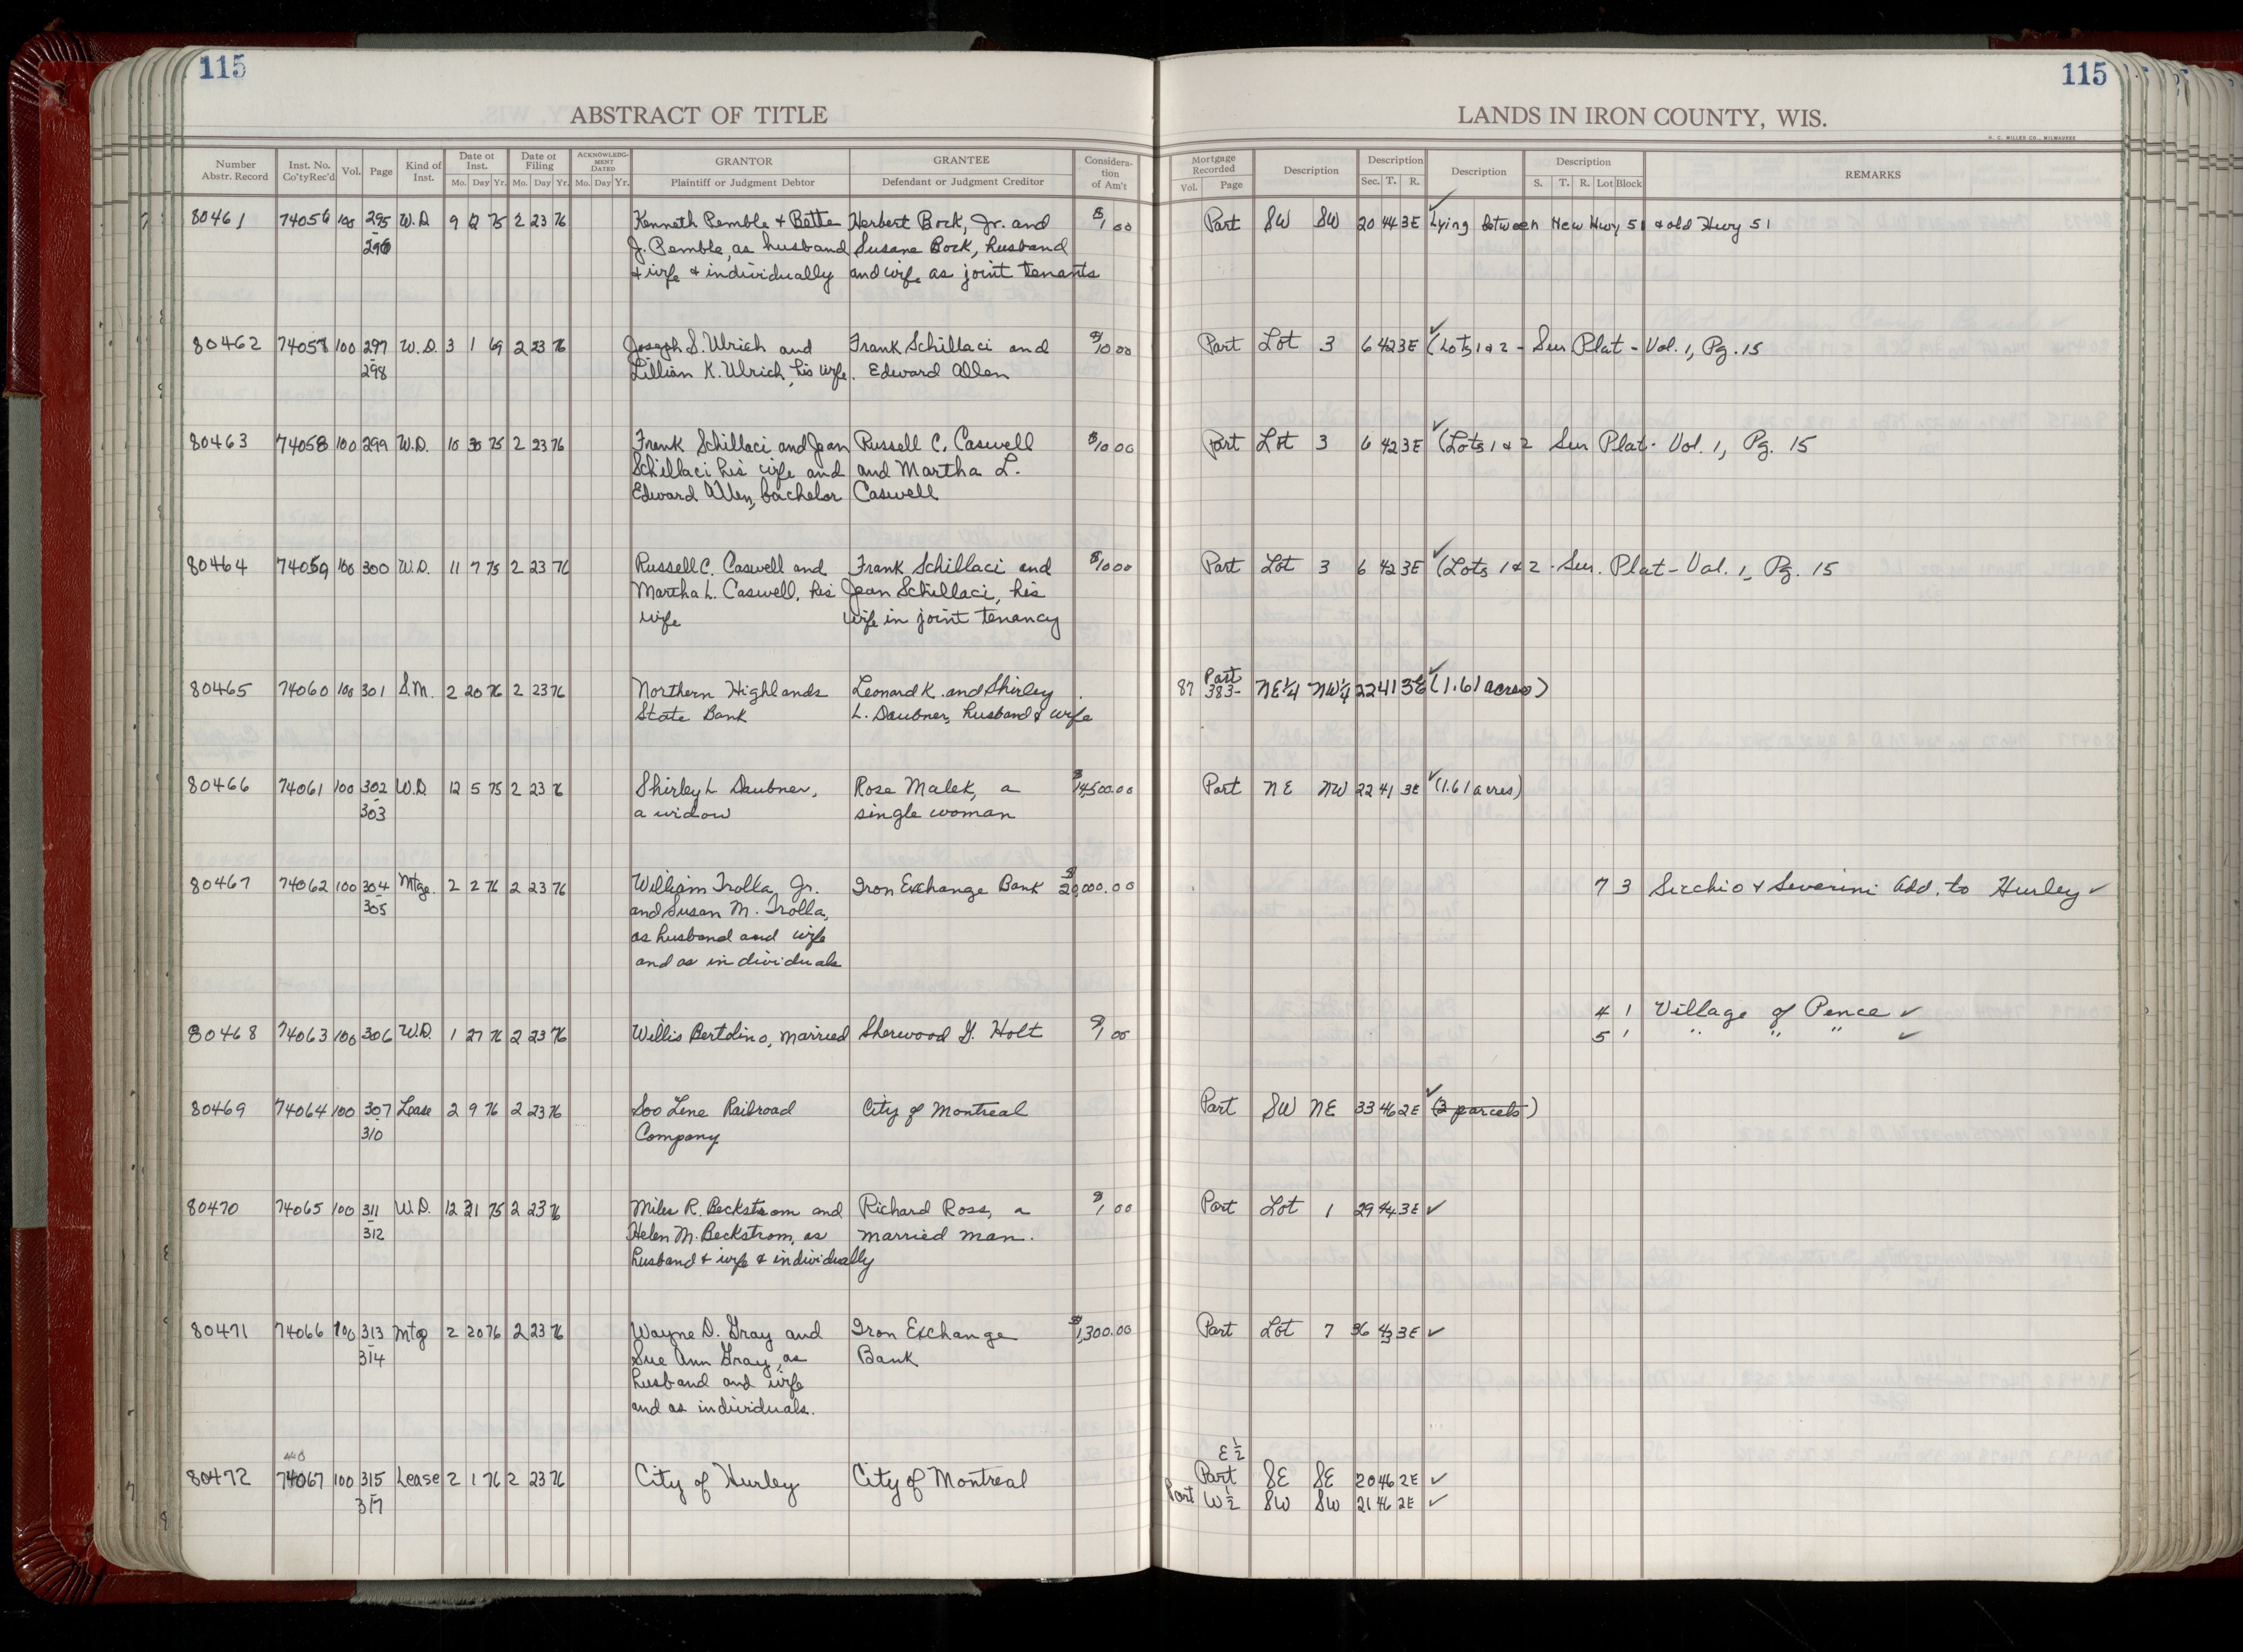 115
115
ABSTRACT OF TITLE
LANDS IN IRON COUNTY, WIS.
H. C. MILLER CO., MILWAUKEE
Number Abstr. Record | Inst. No. Co'ty Rec'd | Vol. | Page | Kind of Inst. | Date of Inst. Mo. Day Yr. | Date of Filing Mo. Day Yr. | ACKNOWLEDGMENT DATED Mo. Day Yr. | GRANTOR Plaintiff or Judgment Debtor | GRANTEE Defendant or Judgment Creditor | Consideration of Am't | Mortgage Recorded Vol. Page | Description | Description Sec. T. R. | Description | Description S. T. R. Lot Block | REMARKS
80461 74056 100 295 W.D 9 12 75 2 23 76 Kenneth Pemble & Bette Herbert Bock, Jr. and $1 00 Part SW SW 20 44 3E ✓ Lying between New Hwy 51 & old Hwy 51
-296 J. Pemble, as husband Susane Bock, husband
& wife & individually and wife as joint tenants
80462 74057 100 297 W.D. 3 1 69 2 23 76 Joseph S. Ulrich and Frank Schillaci and $10 00 Part Lot 3 6 42 3E ✓ (Lots 1 & 2 - Sur Plat - Vol. 1, Pg. 15
298 Lillian K. Ulrich, his wife. Edward Allen
80463 74058 100 299 W.D. 10 30 75 2 23 76 Frank Schillaci and Jean Russell C. Caswell $10 00 Part Lot 3 6 42 3E ✓ (Lots 1 & 2 Sur Plat - Vol. 1, Pg. 15
Schillaci his wife and and Martha L.
Edward Allen, bachelor Caswell
80464 74059 100 300 W.D. 11 7 75 2 23 76 Russell C. Caswell and Frank Schillaci and $10 00 Part Lot 3 6 42 3E ✓ (Lots 1 & 2 - Sur. Plat - Vol. 1, Pg. 15
Martha L. Caswell, his Jean Schillaci, his
wife wife in joint tenancy
Part
80465 74060 100 301 S.M. 2 20 76 2 23 76 Northern Highlands Leonard K. and Shirley 87 383- NE¼ NW¼ 22 41 3E ✓ (1.61 acres)
State Bank L. Daubner, husband & wife
80466 74061 100 302 W.D 12 5 75 2 23 76 Shirley L Daubner, Rose Malek, a $14,500.00 Part NE NW 22 41 3E ✓ (1.61 acres)
-303 a widow single woman
80467 74062 100 304 Mtge. 2 2 76 2 23 76 William Trolla, Jr. Iron Exchange Bank $20,000.00 7 3 Sicchio & Severini Add. to Hurley ✓
-305 and Susan M. Trolla,
as husband and wife
and as individuals
4 1 Village of Pence ✓
80468 74063 100 306 W.D. 1 27 76 2 23 76 Willis Bertolino, married Sherwood G. Holt $1 00 5 1 " " " ✓
80469 74064 100 307 Lease 2 9 76 2 23 76 Soo Line Railroad City of Montreal Part SW NE 33 46 2E ✓ (3 parcels)
310 Company
80470 74065 100 311 W.D. 12 31 75 2 23 76 Miles R. Beckstrom and Richard Ross, a $1 00 Part Lot 1 29 44 3E ✓
-312 Helen M. Beckstrom, as married man.
husband & wife & individually
80471 74066 100 313 Mtg 2 20 76 2 23 76 Wayne D. Gray and Iron Exchange $1,300.00 Part Lot 7 36 43 3E ✓
-314 Sue Ann Gray, as Bank
husband and wife
and as individuals.
E½
80472 74067 100 315 Lease 2 1 76 2 23 76 City of Hurley City of Montreal Part SE SE 20 46 2E ✓
-317 Part W½ SW SW 21 46 2E ✓